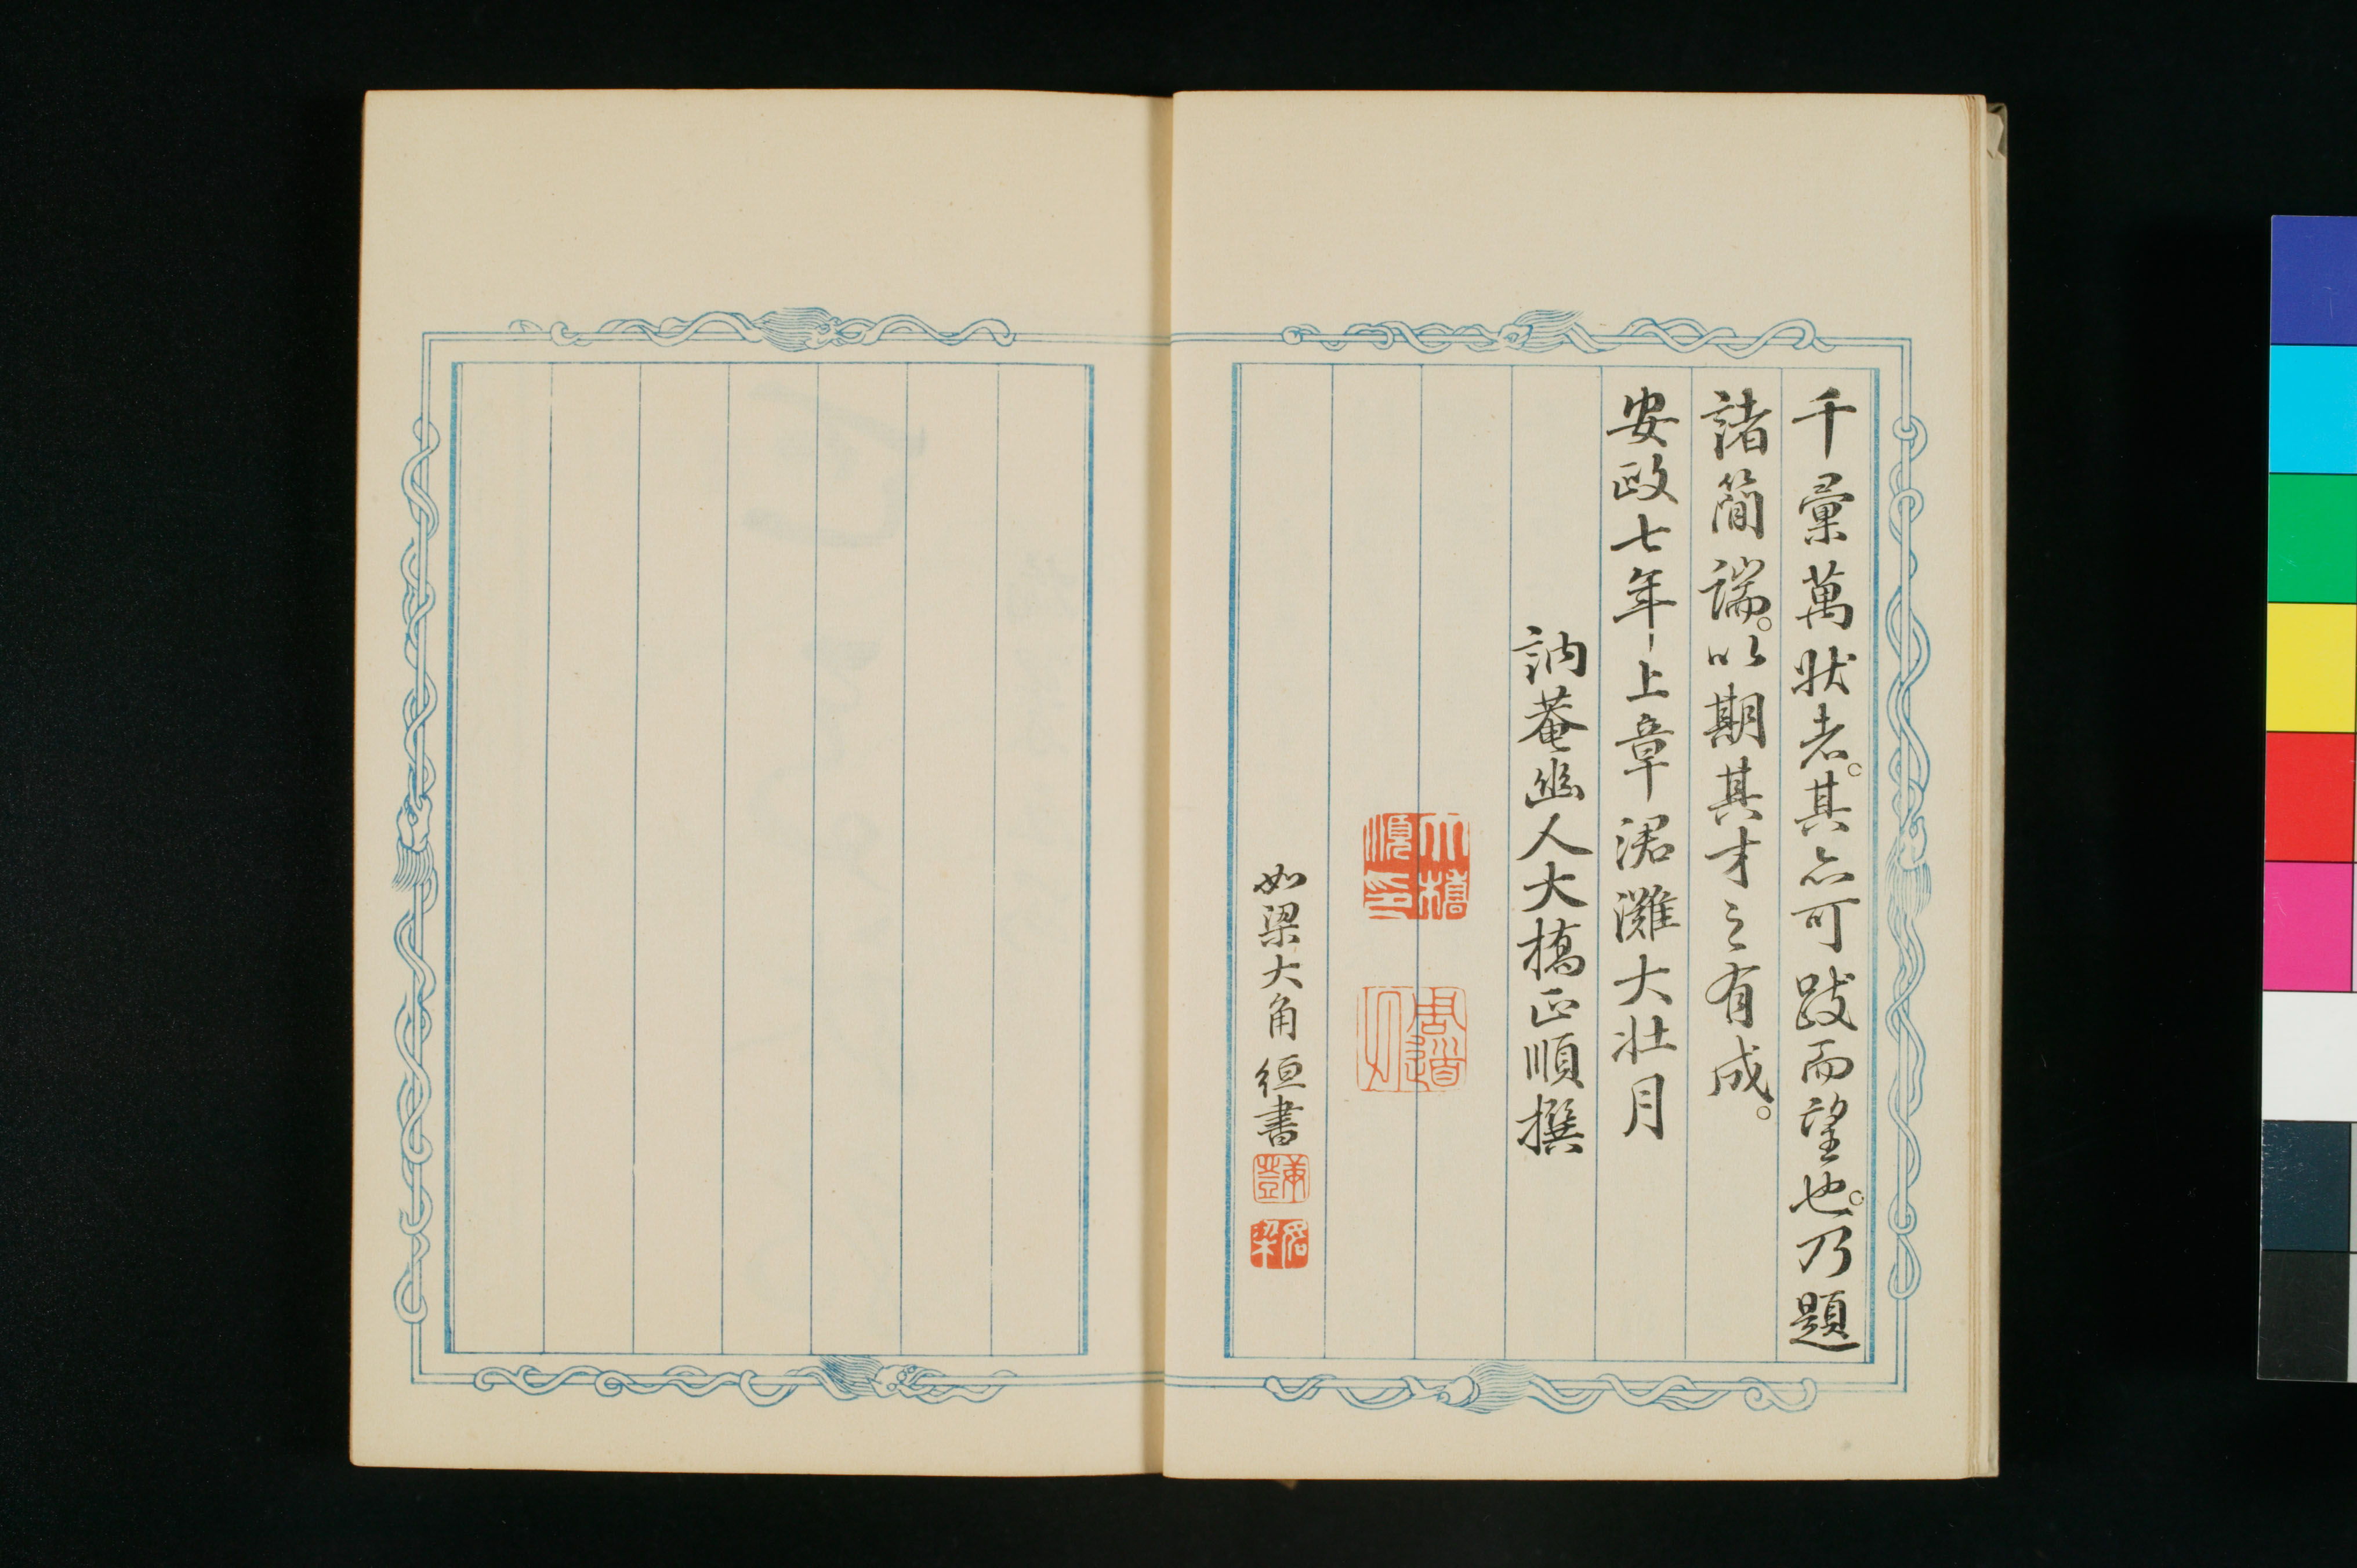 千彙萬狀者。其亦可跂而望也。乃題
諸簡端。以期其才之有成。
安政七年上章涒灘大壯月
訥菴幽人大橋正順撰
大橋順印
周道
如梁大角絙書